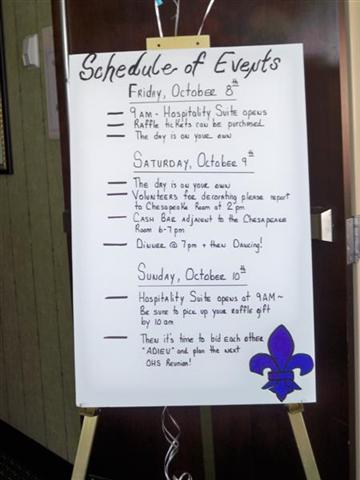 Schedule of Events
Friday, October 8th
— 9 AM - Hospitality Suite opens
— Raffle tickets can be purchased
— The day is on your own
Saturday, October 9th
— The day is on your own
— Volunteers for decorating please report
to Chesapeake Room at 2 pm
— Cash Bar adjacent to the Chesapeake
Room 6-7pm
— Dinner @ 7pm + then Dancing!
Sunday, October 10th
— Hospitality Suite opens at 9AM ~
Be sure to pick up your raffle gift
by 10 am
— Then it's time to bid each other
"ADIEU" and plan the next
OHS Reunion!